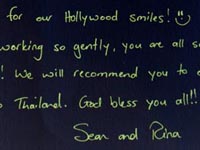 for our Hollywood smiles! ☺
working so gently, you are all so
! We will recommend you to
Thailand. God bless you all!!
Sean and Rina